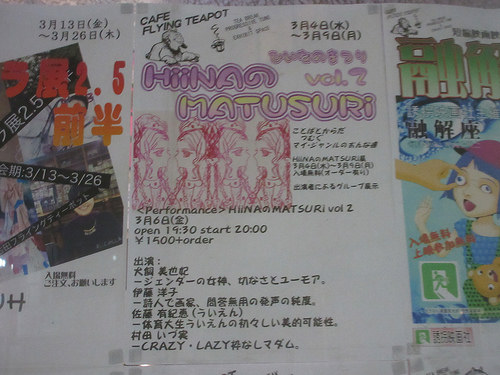 3月13日(金)
～3月26日(木)
展2.5
前半
展2.5
会期:3/13～3/26
フライングティーポット
入場無料
ご注文、お願いします
CAFE
FLYING TEAPOT
3月4日(水)
～3月9日(月)
ひいなのまつり
HiiNAの vol.2
MATUSURi
ことばとからだ
つむぐ
マイ・ジャンルのおんな達
HiiNAのMATSURi展
3月4日(水)～3月9日(月)
入場無料(オーダー有り)
出演者によるグループ展示
<Performance> HiiNAのMATSURi vol 2
3月6日(金)
open 19:30 start 20:00
￥1500+order
出演：
犬飼 美也妃
－ジェンダーの女神、切なさとユーモア。
伊藤 洋子
－詩人で画家、問答無用の発声の純度。
佐藤 有紀恵(ういえん)
－体育大生ういえんの初々しい美的可能性。
村田 いづ実
－CRAZY・LAZY枠なしマダム。
短編映画
融解
融解座
入場無料